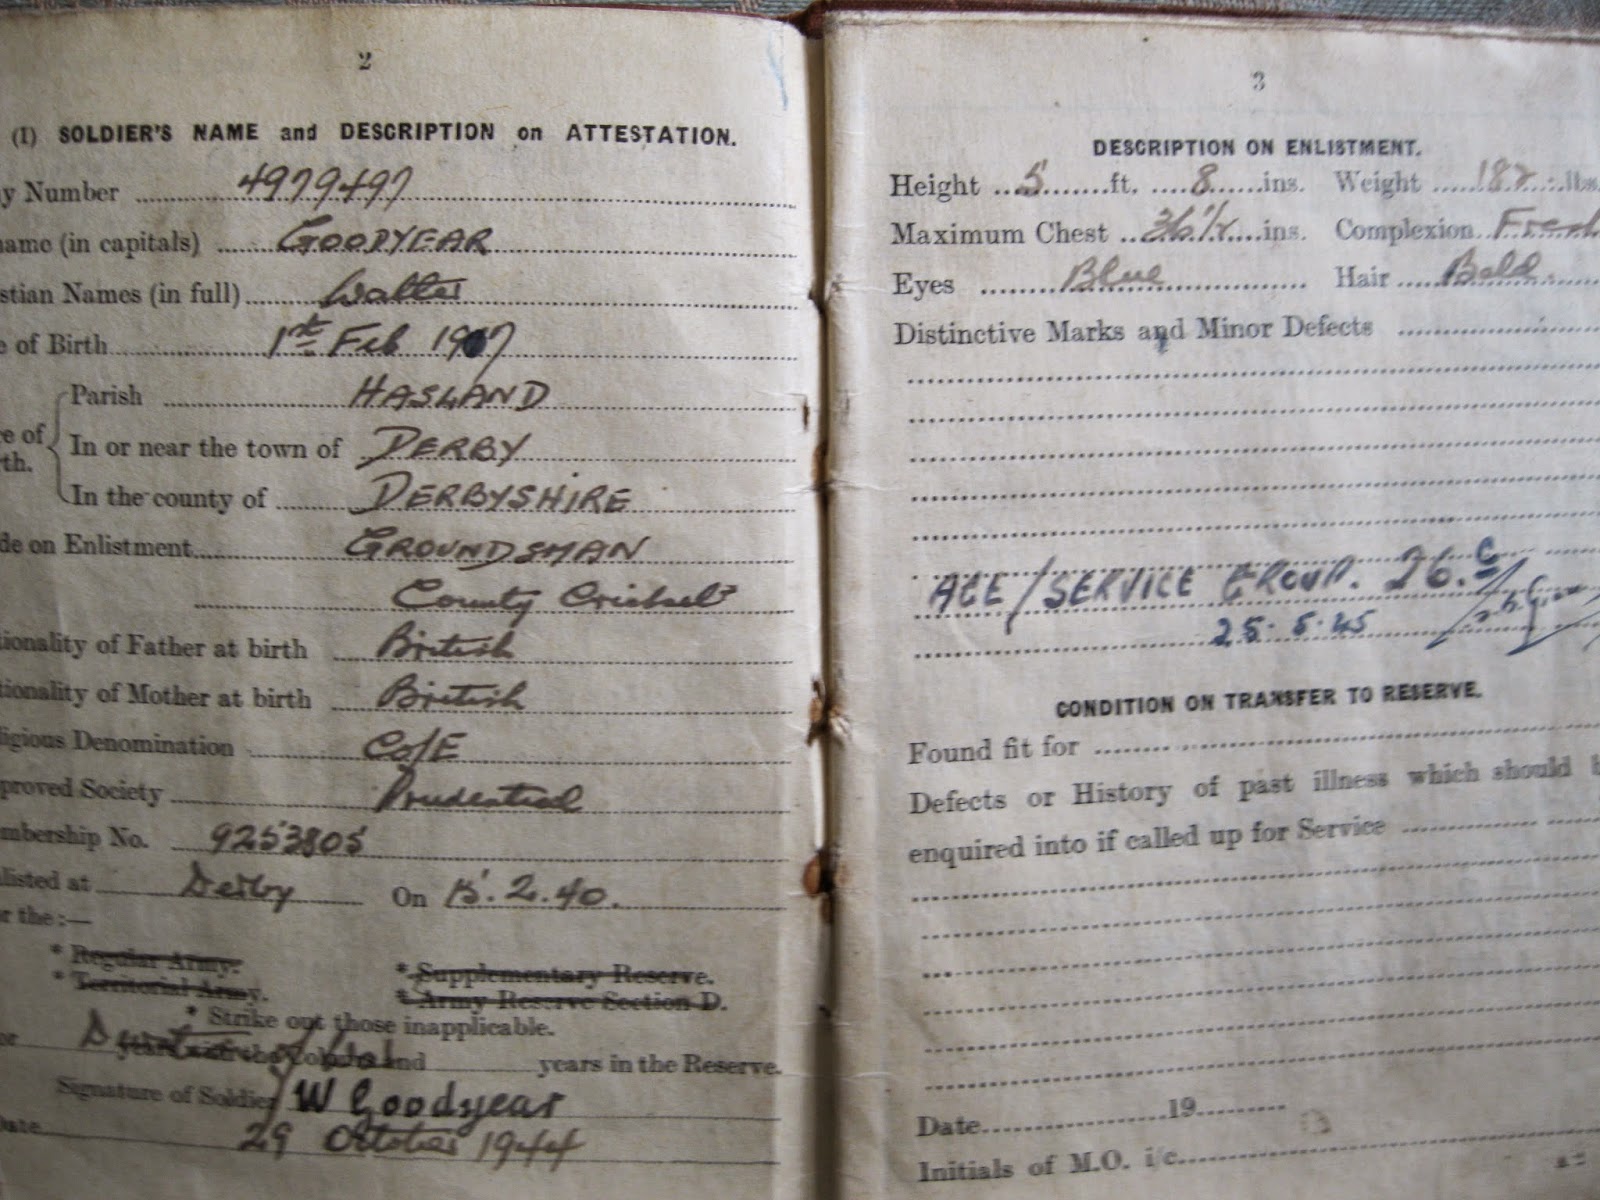 2
(I) SOLDIER'S NAME and DESCRIPTION on ATTESTATION.
y Number 4979497
ame (in capitals) GOODYEAR
stian Names (in full) Walter
e of Birth 1st Feb 1907
Parish HASLAND
e of
th.
In or near the town of DERBY
In the county of DERBYSHIRE
de on Enlistment GROUNDSMAN
County Cricket
tionality of Father at birth British
tionality of Mother at birth British
ligious Denomination Co/E
proved Society Prudential
mbership No. 9253805
listed at Derby On 15.2.40.
r the:—
* Regular Army. * Supplementary Reserve.
* Territorial Army. * Army Reserve Section D.
* Strike out those inapplicable.
or Duration of years with the Colours and years in the Reserve.
Signature of Soldier W Goodyear
Date 29 October 1944
3
DESCRIPTION ON ENLISTMENT.
Height 5 ft. 8 ins. Weight lbs.
Maximum Chest 36 1/2 ins. Complexion Fresh
Eyes Blue Hair Bald
Distinctive Marks and Minor Defects
AGE/SERVICE GROUP. 26.
25.5.45
CONDITION ON TRANSFER TO RESERVE.
Found fit for
Defects or History of past illness which should b
enquired into if called up for Service
Date 19
Initials of M.O. i/c